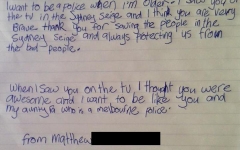 want to be a police when I'm older. I saw you on
the TV in the Sydney Seige and I think you are very
Brave. thank you for saving the people in the
Sydney Seige and always protecting us from
the bad people.
when I saw you on the TV, I thought you were
awesome and I want to be like you and
my aunty who is a melbourne police.
from Matthew